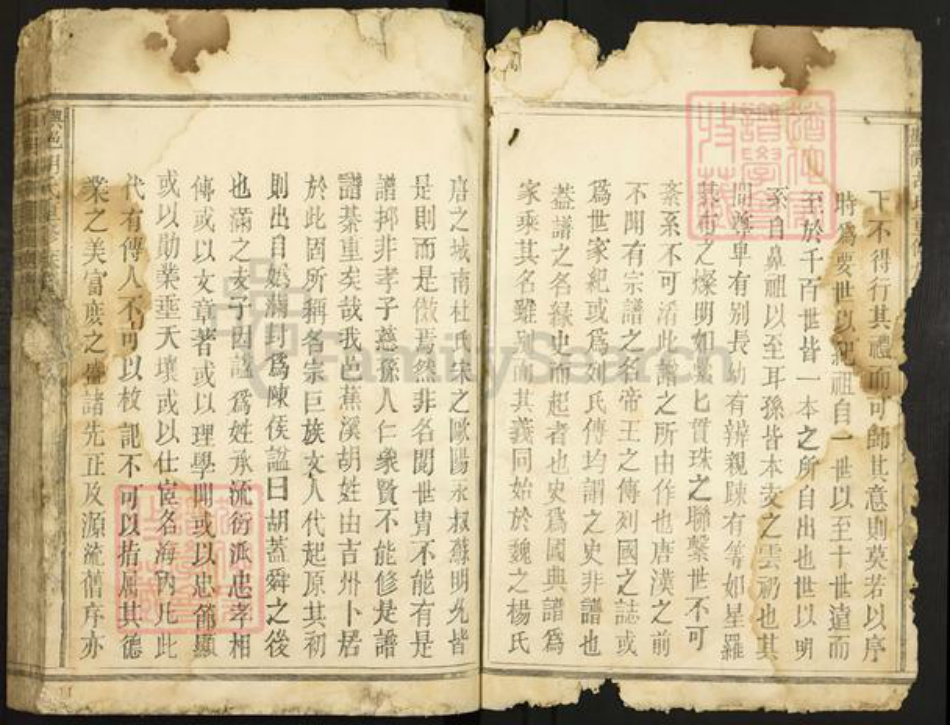 下不得行其禮而可師其意則莫若以序
時爲要世以紀祖自一世以至十世遠而
至於千百世皆一本之所自出也世以明
系自鼻祖以至耳孫皆本支之雲礽也其
間尊卑有別長幼有辨親踈有等如星羅
棊布之燦明如纍匕貫珠之聯繫世不可
紊系不可淆此譜之所由作也唐漢之前
不聞有宗譜之名帝王之傳列國之誌或
爲世家紀或爲列氏傳均謂之史非譜也
葢譜之名緑史而起者也史爲國典譜爲
家乘其名雖別而其義同始於魏之楊氏
唐之城南杜氏宋之歐陽永叔蘇明允皆
是則而是倣焉然非名閥世冑不能有是
譜抑非孝子慈孫人仁象賢不能修是譜
譜綦重矣哉我邑蕉溪胡姓由吉州卜居
於此固所稱名宗巨族文人代起原其初
則出自嬀滿封爲陳侯諡曰胡蓋舜之後
也滿之支子因諡爲姓承流衍派忠孝相
傳或以文章著或以理學聞或以忠節顯
或以勛業垂天壤或以仕宦名海內凡此
代有傳人不可以枚記不可以指屈其德
業之美富庶之盛諸先正及源流舊序亦
FamilySearch